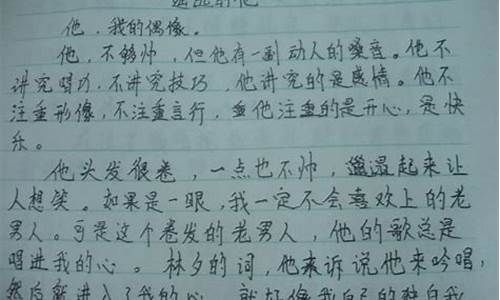 的他
他，我的偶像。
他，不够帅，但他有一副动人的嗓音。他不
讲究唱功，不讲究技巧，他讲究的是感情。他不
注重形像，不注重言行，他注重的是开心，是快
乐。
他头发很卷，一点也不帅，邋遢起来让
人想笑。如果是一眼，我一定不会喜欢上的老
男人。可是这个卷发的老男人，他的歌总是
唱进我的心。林夕的词，他来诉说他来吟唱，
然后就进入了我的心，就好像我自己的独白我